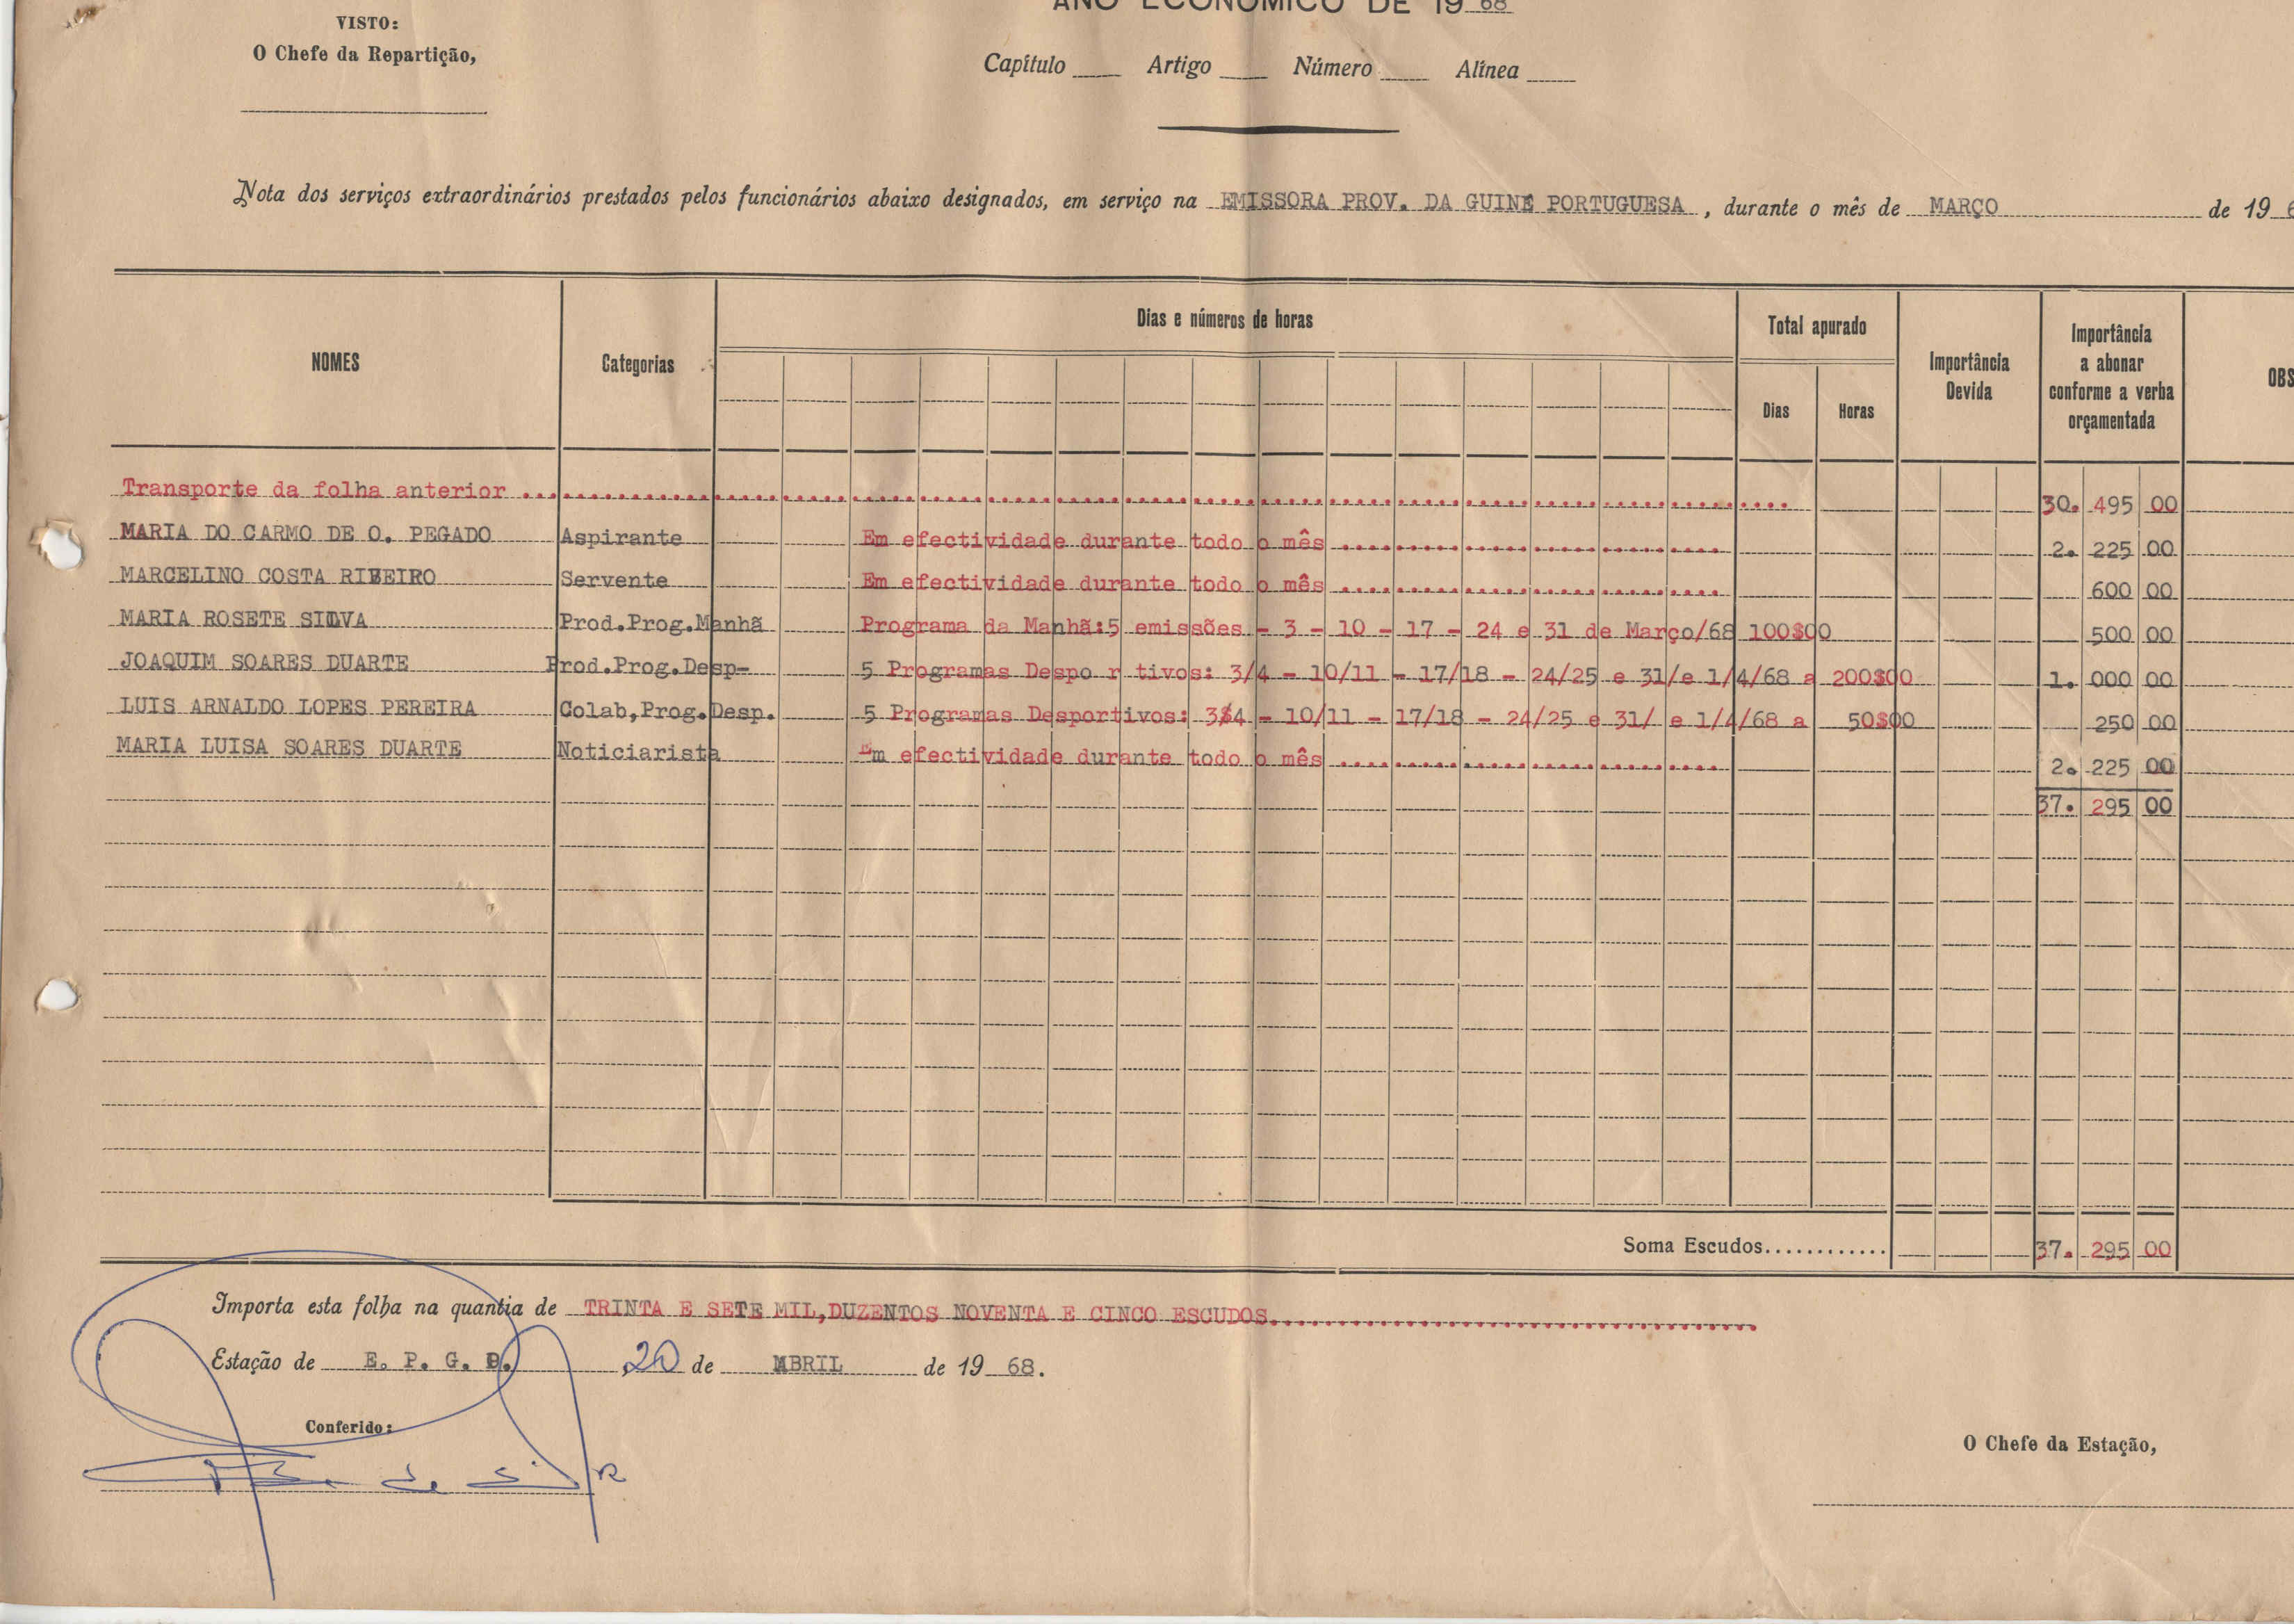 ANO ECONÓMICO DE 19 68
VISTO:
O Chefe da Repartição,
Capítulo ____ Artigo ____ Número ____ Alínea ____
Nota dos serviços extraordinários prestados pelos funcionários abaixo designados, em serviço na EMISSORA PROV. DA GUINÉ PORTUGUESA, durante o mês de MARÇO de 19 6
NOMES Categorias Dias e números de horas Total apurado Dias Horas Importância Devida Importância a abonar conforme a verba orçamentada OBS
Transporte da folha anterior ........ 30. 495 00
MARIA DO CARMO DE O. PEGADO Aspirante Em efectividade durante todo o mês ........ 2. 225 00
MARCELINO COSTA RIBEIRO Servente Em efectividade durante todo o mês ........ 600 00
MARIA ROSETE SILVA Prod.Prog.Manhã Programa da Manhã:5 emissões - 3 - 10 - 17 - 24 e 31 de Março/68 100$00 500 00
JOAQUIM SOARES DUARTE Prod.Prog.Desp- 5 Programas Despo r tivos: 3/4 - 10/11 - 17/18 - 24/25 e 31/e 1/4/68 a 200$00 1. 000 00
LUIS ARNALDO LOPES PEREIRA Colab,Prog.Desp. 5 Programas Desportivos: 3/4 - 10/11 - 17/18 - 24/25 e 31/ e 1/4/68 a 50$00 250 00
MARIA LUISA SOARES DUARTE Noticiarista Em efectividade durante todo o mês ........ 2. 225 00
37. 295 00
Soma Escudos............ 37. 295 00
Importa esta folha na quantia de TRINTA E SETE MIL,DUZENTOS NOVENTA E CINCO ESCUDOS........
Estação de E. P. G. P. , 20 de ABRIL de 19 68.
Conferido:
O Chefe da Estação,